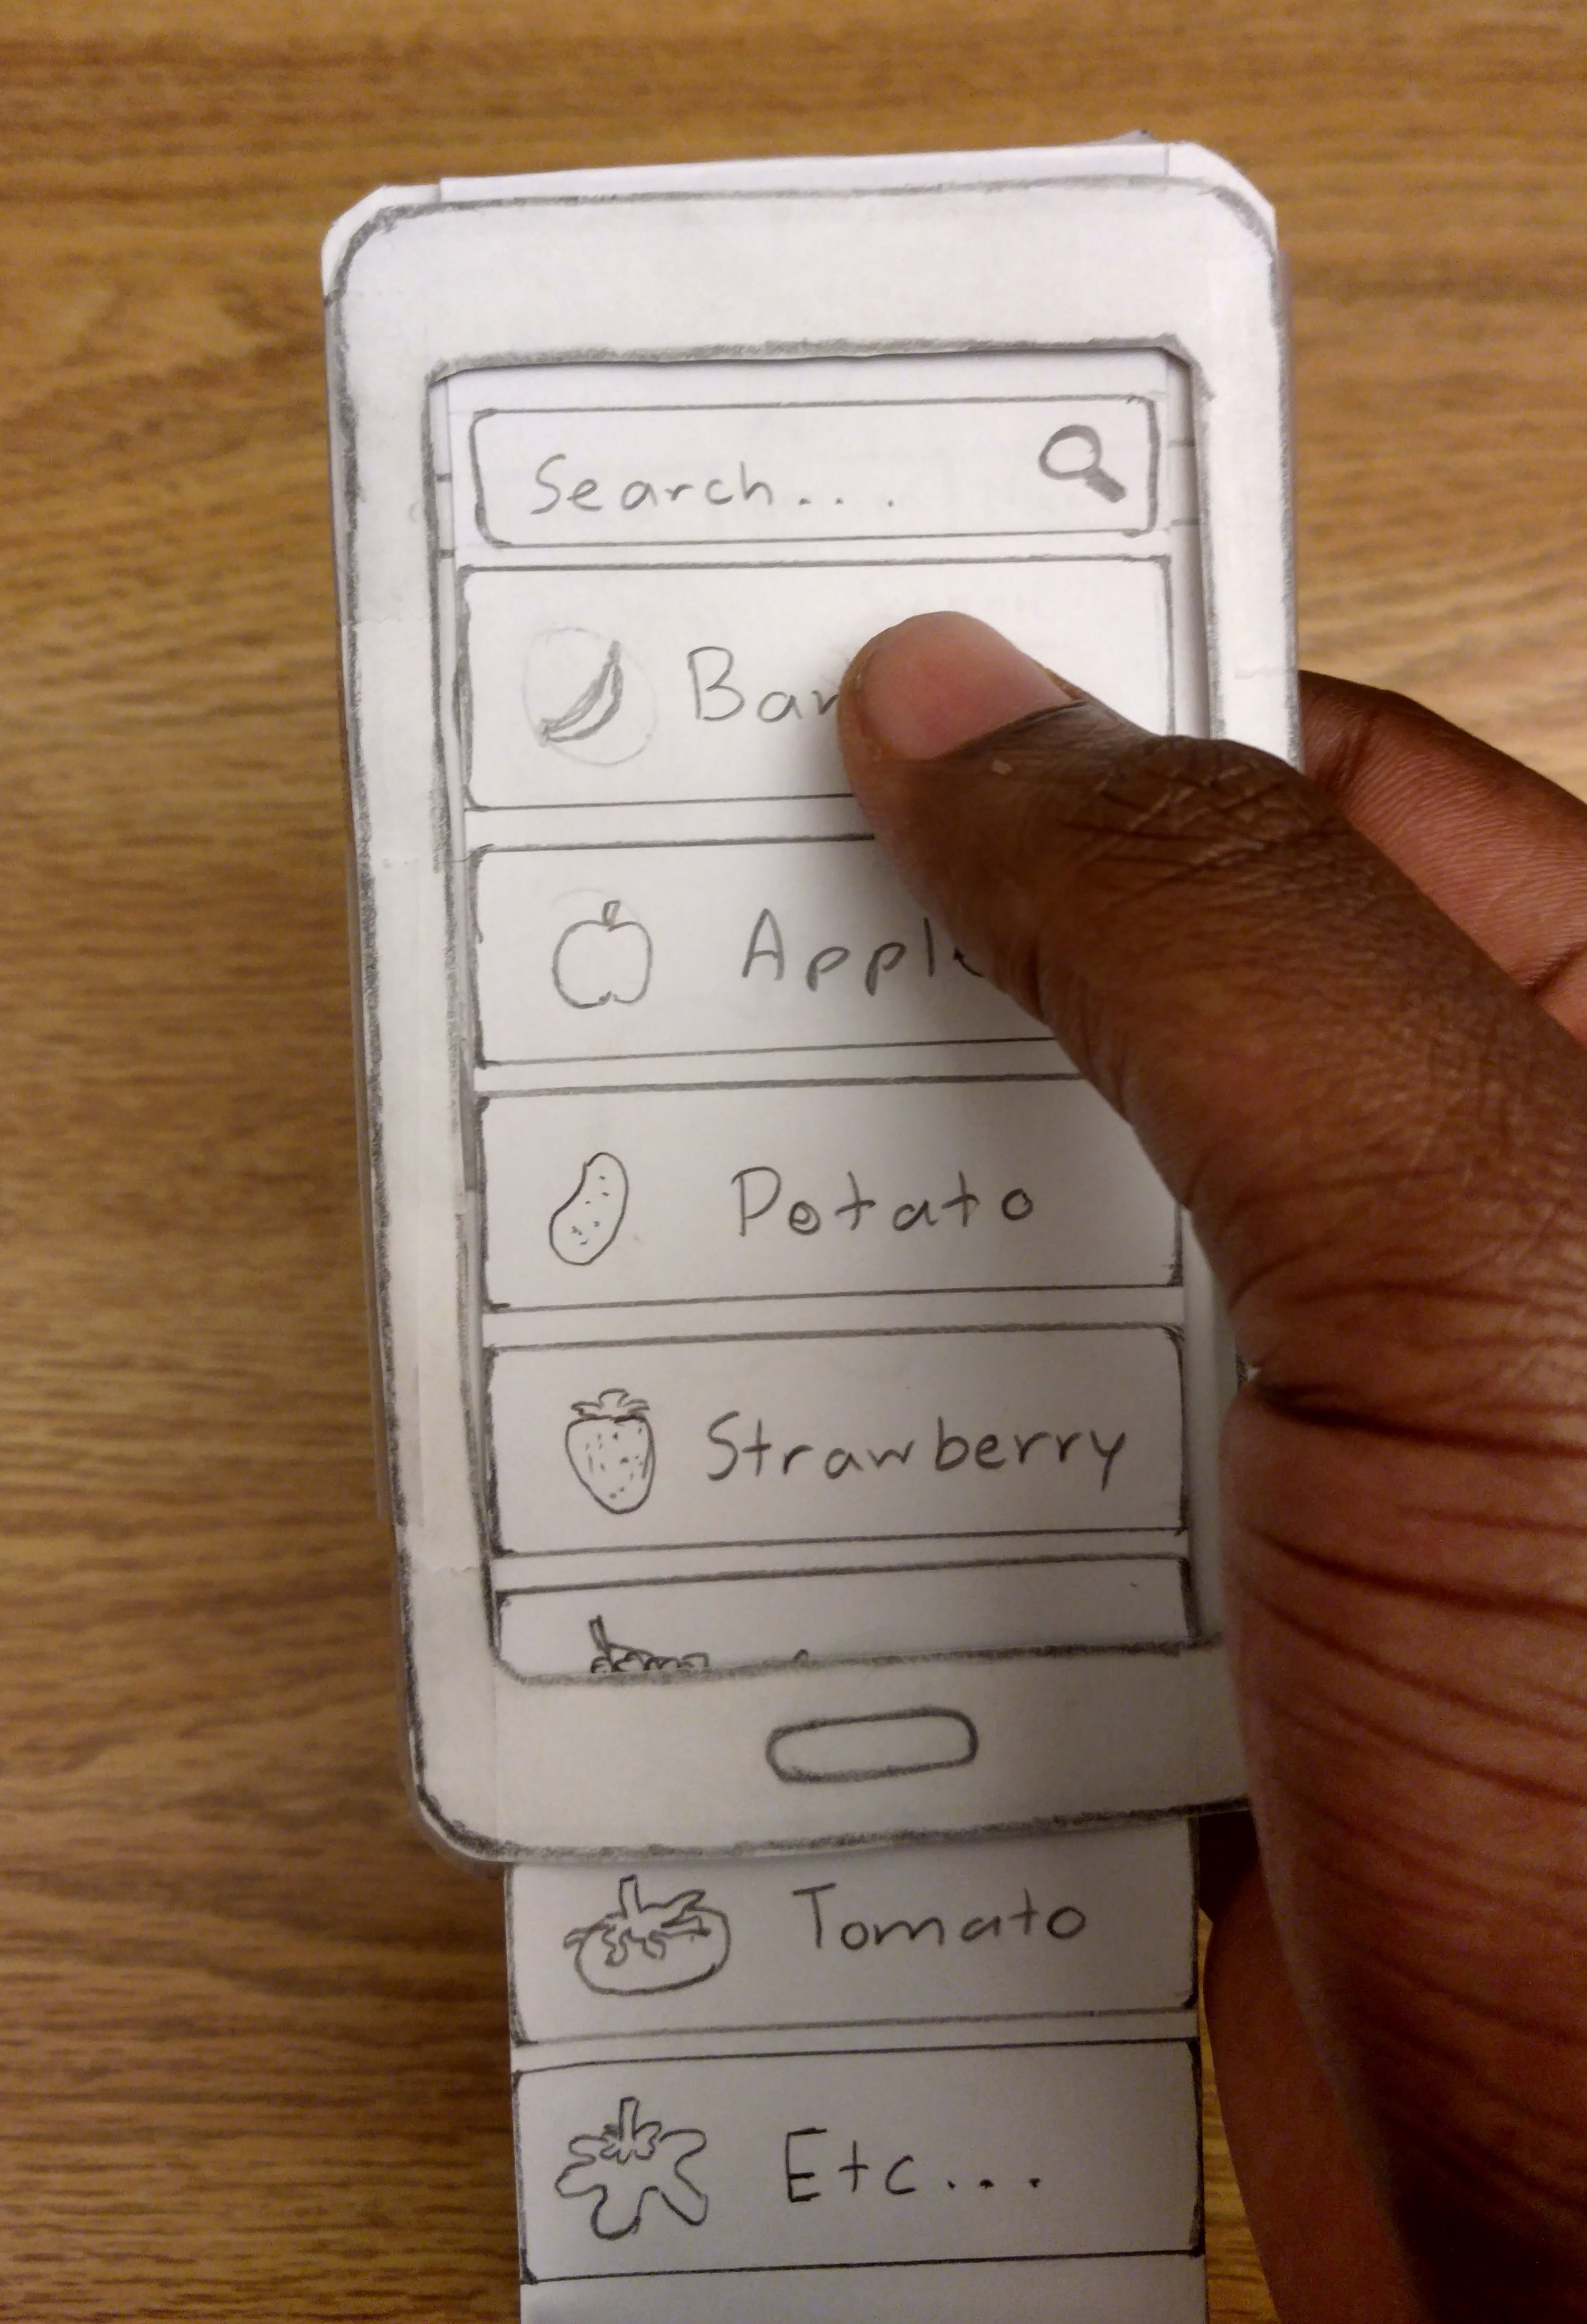 Search...
Potato
Strawberry
Tomato
Etc...